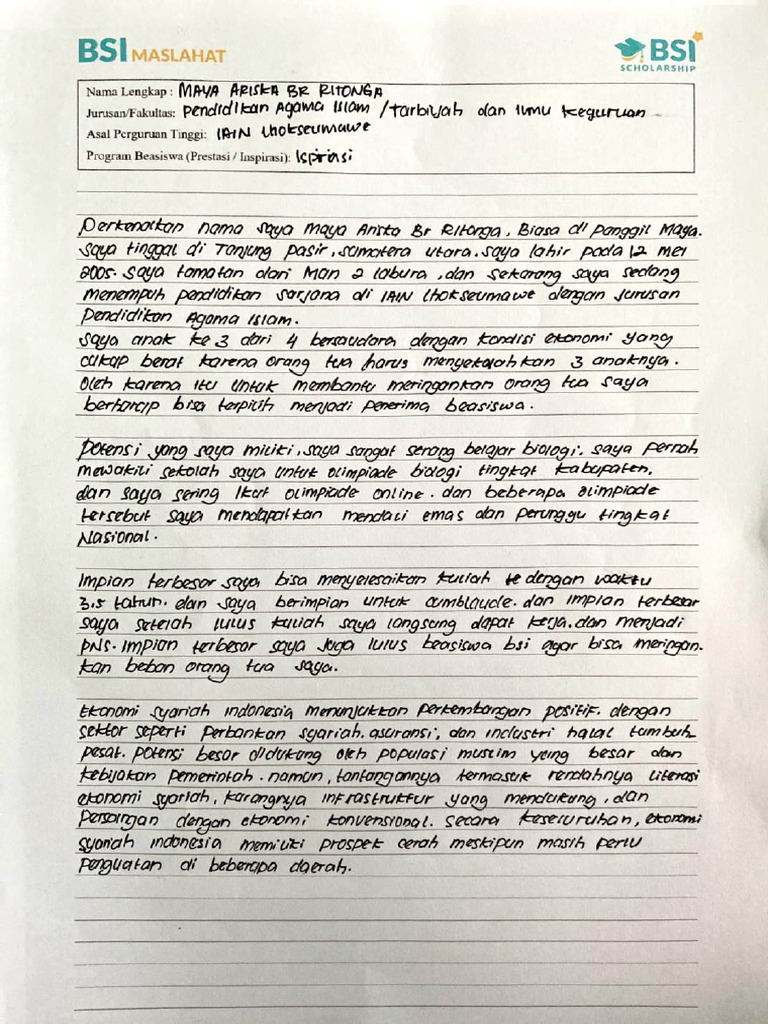 BSI MASLAHAT
BSI
SCHOLARSHIP
Nama Lengkap : MAYA ARISKA BR RITONGA
Jurusan/Fakultas: Pendidikan Agama Islam / Tarbiyah dan Ilmu Keguruan
Asal Perguruan Tinggi: IAIN Lhokseumawe
Program Beasiswa (Prestasi / Inspirasi): Ispirasi
Perkenalkan nama saya Maya Ariska Br Ritonga, Biasa di panggil Maya.
Saya tinggal di Tanjung pasir, sumatera utara. saya lahir pada 12 mei
2005. saya tamatan dari Man 2 labura, dan sekarang saya sedang
menempuh pendidikan sarjana di IAIN Lhokseumawe dengan Jurusan
Pendidikan Agama Islam.
Saya anak ke 3 dari 4 bersaudara dengan kondisi ekonomi yang
cukup berat karena orang tua harus menyekolahkan 3 anaknya.
Oleh karena itu untuk membantu meringankan orang tua saya
berharap bisa terpilih menjadi penerima beasiswa.
Potensi yang saya miliki, saya sangat senang belajar biologi. saya pernah
mewakili sekolah saya untuk olimpiade biologi tingkat kabupaten.
dan saya sering Ikut olimpiade online. dan beberapa olimpiade
tersebut saya mendapatkan mendali emas dan perunggu tingkat
Nasional.
Impian terbesar saya bisa menyelesaikan kuliah dengan waktu
3.5 tahun. dan saya berimpian untuk cumblaude. dan Impian terbesar
saya setelah lulus kuliah saya langsung dapat kerja. dan menjadi
PNS. Impian terbesar saya Juga lulus beasiswa bsi agar bisa meringan.
kan beban orang tua saya.
Ekonomi syariah Indonesia menunjukkan perkembangan positif. dengan
sektor seperti Perbankan syariah, asuransi, dan industri halal tumbuh
pesat. potensi besar didukung oleh populasi muslim yang besar dan
kebijakan pemerintah. namun, tantangannya termasuk rendahnya literasi
ekonomi syariah, kurangnya infrastruktur yang mendukung, dan
Persaingan dengan ekonomi konvensional. secara keseluruhan, ekonomi
syariah indonesia memiliki prospek cerah meskipun masih perlu
penguatan di beberapa daerah.